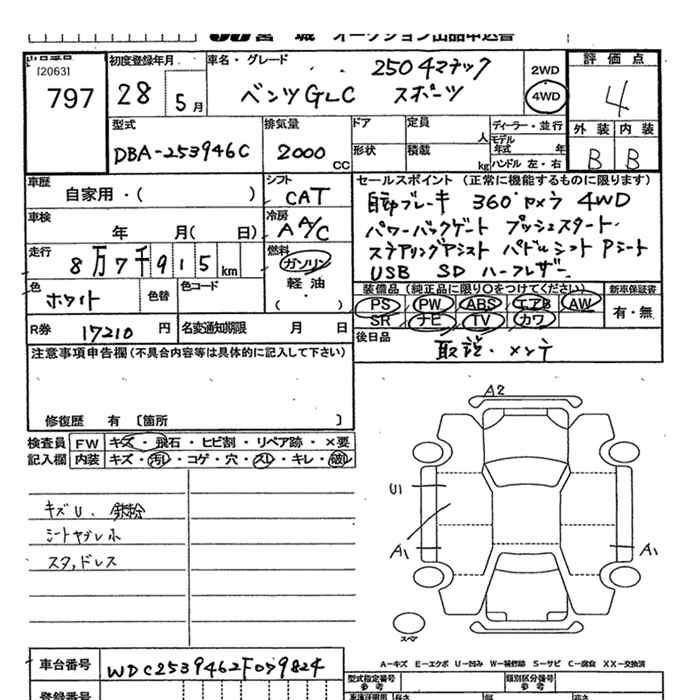 宮城 オークション出品申込書
出品番号 [2063] 797
初度登録年月 28 5月
車名・グレード 250 4マチック
ベンツGLC スポーツ
2WD 4WD
評価点 4
外装 内装 B B
型式 DBA-253946C
排気量 2000 CC
ドア 形状
定員 人 積載 kg
ディーラー・並行
モデル年式 年
ハンドル 左・右
車歴 自家用・( )
シフト CAT
車検 年 月( 日)
冷房 AA/C
走行 8万7千915km
燃料 ガソリン 軽油・ ( )
色 ホワイト 色替 色コード
R券 17210円 名変通知期限 月 日
セールスポイント (正常に機能するものに限ります)
自動ブレーキ 360°カメラ 4WD
パワーバックゲート プッシュスタート
ステアリングアシスト パドルシフト Pシート
USB SD ハーフレザー
装備品 (純正品に限り○をつけてください) 新車保証書
PS PW ABS エアB AW 有・無
SR ナビ TV カワ
後日品 取説・メンテ
注意事項申告欄(不具合内容等は具体的に記入して下さい)
修復歴 有 〔箇所 〕
検査員 FW キズ・飛石・ヒビ割・リペア跡・×要
記入欄 内装 キズ・汚レ・コゲ・穴・スレ・キレ・破レ
キズU. 鉄粉
シートヤブレ小
スタッドレス
A2
U1
A1 A1
スペア
A-キズ E-エクボ U-凹み W-補修跡 S-サビ C-腐食 XX-交換済
車台番号 WDC2539462F079824
型式指定番号 参考 類別区分番号 参考
登録番号
長さ 幅 高さ